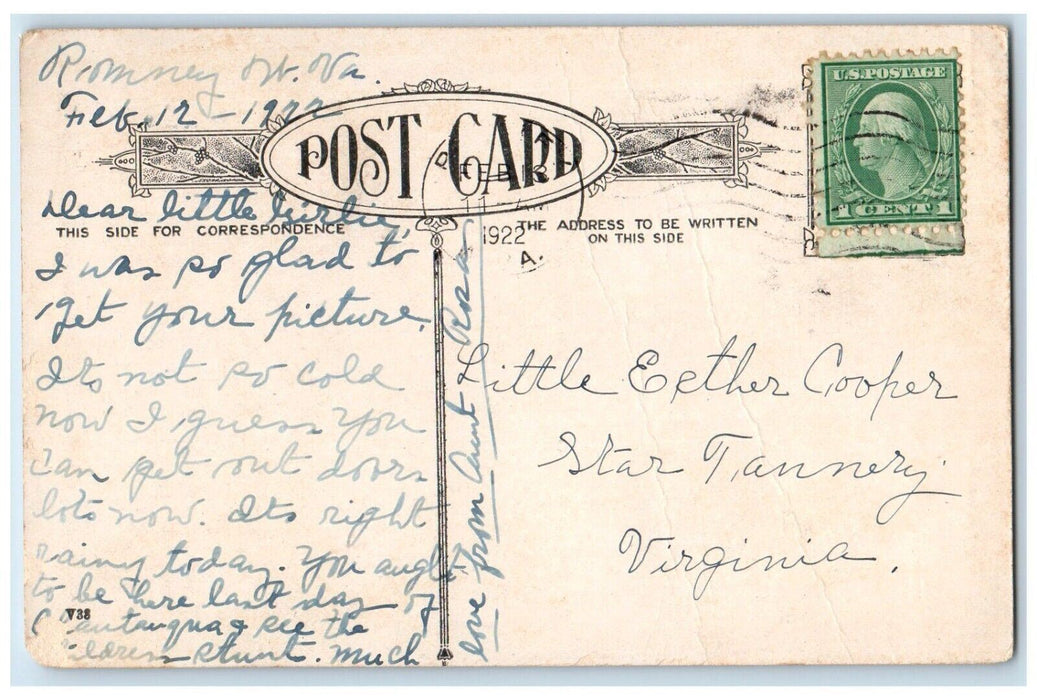 Romney W. Va.
Feb. 12 - 1922
POST CARD
U.S. POSTAGE
1 CENT 1
FEB
11
1922
A.
THIS SIDE FOR CORRESPONDENCE
THE ADDRESS TO BE WRITTEN
ON THIS SIDE
Dear little girlie,
I was so glad to
get your picture.
Its not so cold
now I guess you
can get out doors
lots now. Its right
rainy today. You aught
to be here last day of
Chautauqua & see the
childrens stunt. Much
love from Aunt Rosa
V38
Little Esther Cooper
Star Tannery
Virginia.